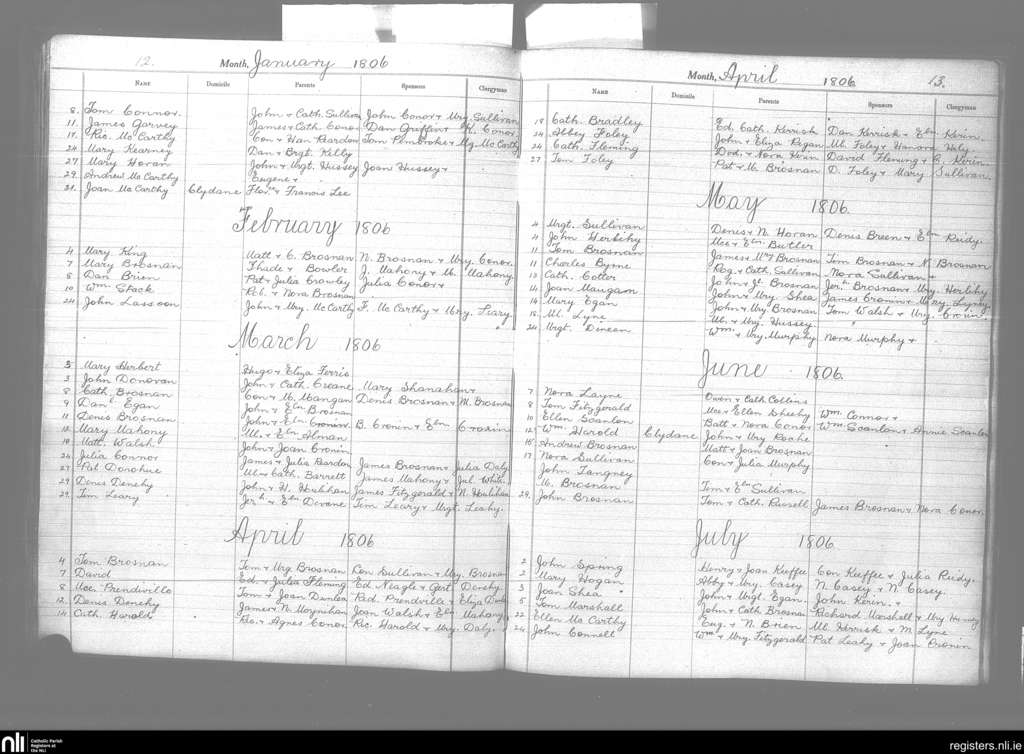 12.
Month, January 1806
Name Domicile Parents Sponsors Clergyman
8. Tom Connor. John & Cath. Sullivan John Conor & Mry. Sullivan
11. James Garvey James & Cath. Conor Dan Griffin & K. Conor
17. Ric. McCarthy Con & Han Reardon Tom Pembroke & Mg. McCarthy
24 Mary Kearney Dan & Brgt. Kelly
27 Mary Horan John & Mrgt. Hussey Joan Hussey &
29. Andrew McCarthy Eugene &
31. Joan McCarthy Clydane & Francis Lee
February 1806
4 Mary King Matt & C. Brosnan N. Brosnan & Mry. Conor
7 Mary Brosnan Thade & Bowler J. Mahony & M. Mahony
8 Dan Brien Pat & Julia Crowley Julia Conor &
10 Wm. Stack Rob. & Nora Brosnan
24 John Lassoon John & Mry. McCarthy F. McCarthy & Mry. Leary
March 1806
3 Mary Herbert Hugo & Eliza Ferris
3 John Donovan John & Cath. Creane Mary Shanahan &
8 Cath. Brosnan Con & M. Mangan Denis Brosnan & M. Brosnan
9 Danl. Egan John & Eln Brosnan
11 Denis Brosnan John & Eln Cronin B. Cronin & Eln Cronin
12 Mary Mahony Ml. & Eln Alman
10 Matt. Walsh John & Joan Cronin
24 Julia Connor James & Julia Reardon James Brosnan & Julia Daly
27 Pat Donohue Ml & Cath. Barrett James Mahony & Jul. White
29 Denis Denehy John & H. Houlihan James Fitzgerald & N. Houlihan
29. Tim Leary Jerh & Eln Devane Tim Leary & Mrgt. Leahy.
April 1806
4 Tom Brosnan Tom & Mrg Brosnan Ron Sullivan & Mry. Brosnan
7 David Ed. & Julia Fleming Ed Neagle & Gert Denehy
8 Mce. Prendiville Tom & Joan Danlea Red. Prendiville & Eliza Daly
12. Denis Denehy James & N. Moynihan Joan Walsh & Eln Mahony
14 Cath. Harold Ric. & Agnes Conor. Ric. Harold & Mry. Daly.
Month, April 1806 13.
Name Domicile Parents Sponsors Clergyman
18 Cath. Bradley Ed. Cath. Kerrish Dan Kerrisk & Eln Kerin.
24 Abbey Foley John & Eliza Regan Ml. Foley & Hanora Hely
24 Cath. Fleming Dod. & Nora Keran David Fleming & C. Kerin
27 Tom Foley Pat & M. Brosnan D. Foley & Mary Sullivan.
May 1806
4 Mrgt. Sullivan Denis & N. Horan Denis Breen & Eln Reidy
4 John Herlihy Mce & Eln. Butler
11 Tom Brosnan James Brosnan Tom Brosnan & N. Brosnan
11 Charles Byrne Rog. & Cath. Sullivan Nora Sullivan &
13 Cath. Cotter John & Jl. Brosnan Jerh. Brosnan & Mry. Herlihy
14 Joan Maugam John & Mry. Shea James Cronin & Mry. Lyne
14 Mary Egan John & Mry. Brosnan Tom Walsh & Mry. Cronin.
18. Ml. Lyne Ml. & Mry. Hussey
24 Mrgt. Dineen Wm. & Mry. Murphy Nora Murphy &
June 1806
7 Nora Layne Owen & Cath Collins
9 Tom Fitzgerald Mce & Ellen Sheehy Wm. Connor &
10 Ellen Scanlon Batt & Nora Conor Wm Scanlon & Annie Scanlon
12 Wm. Harold Clydane John & Mry Roche
15 Andrew Brosnan Matt & Joan Brosnan
17 Nora Sullivan Con & Julia Murphy
John Tangney
M. Brosnan Tom & Eln Sullivan
29. John Brosnan Tom & Cath. Russell James Brosnan & Nora Conor.
July 1806
2 John Spring Henry & Joan Keeffee Con Keeffee & Julia Reidy.
2 Mary Hogan Abby & Mry. Casey N. Casey & N. Casey.
3 Joan Shea John & Mrgt. Egan. John Kerin. &
5 Tom Marshall John & Cath Brosnan Richard Marshell & Mry
22 Ellen McCarthy Eug. & N. Brien Ml. Kerrisk & M Lyne
24 John Connell Wm & Mry. Fitzgerald Pat Leahy & Joan Cronin
nli Catholic Parish Registers at the NLI
registers.nli.ie